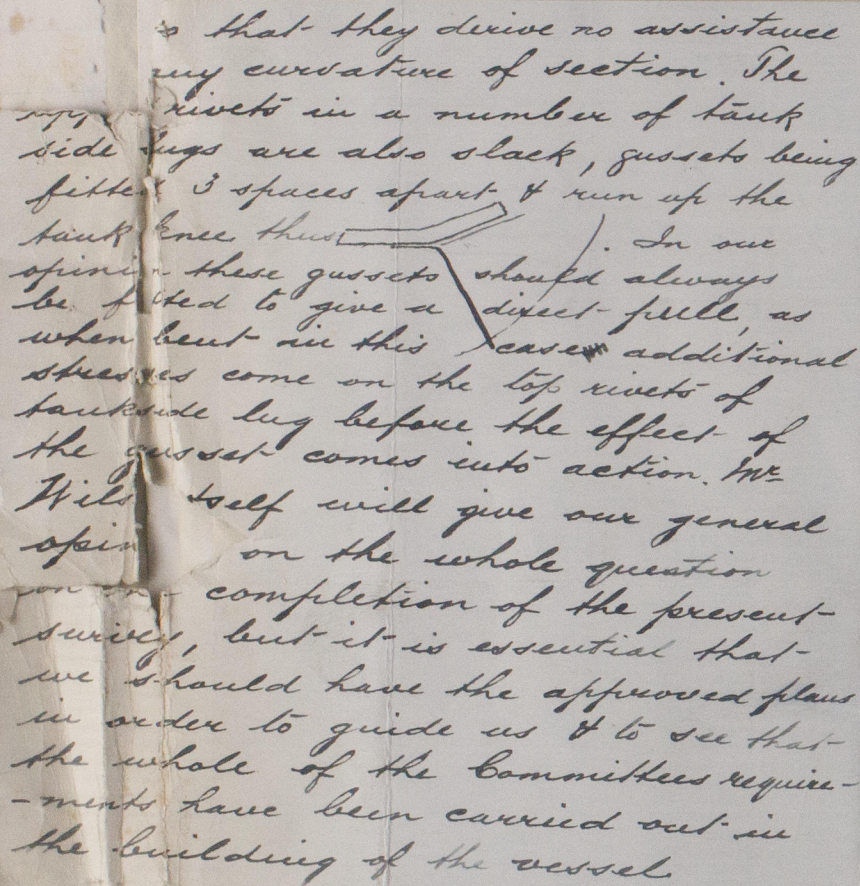 that they derive no assistance
curvature of section. The
rivets in a number of tank
side lugs are also slack, gussets being
fitted 3 spaces apart & run up the
tank knee thus . In our
opinion these gussets should always
be fitted to give a direct pull, as
when bent in this case additional
stresses come on the top rivets of
tankside lug before the effect of
the gusset comes into action. Mr
will give our general
on the whole question
completion of the present
survey, but it is essential that
we should have the approved plans
in order to guide us & to see that
the whole of the Committees require-
-ments have been carried out in
the building of the vessel